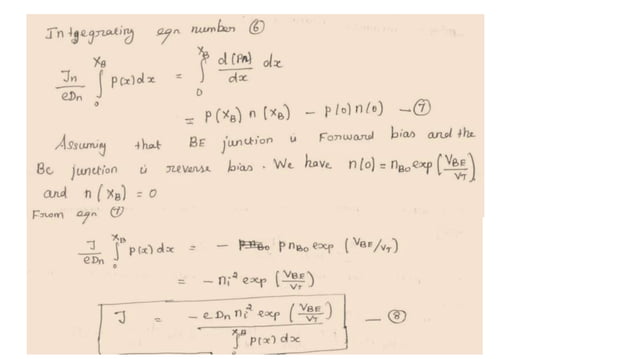 Intgegrating eqn number ⑥
Jn/eDn ∫₀^XB P(x)dx = ∫₀^XB d(Pn)/dx dx
= P(XB) n(XB) - P(0)n(0) —⑦
Assuming that BE junction is Forward bias and the
BC junction is reverse bias. We have n(0) = nB0 exp(VBE/VT)
and n(XB) = 0
From eqn ⑦
J/eDn ∫₀^XB P(x)dx = - p nB0 exp (VBE/VT)
= - ni² exp (VBE/VT)
J = -e Dn ni² exp (VBE/VT) / ∫₀^XB P(x) dx —⑧